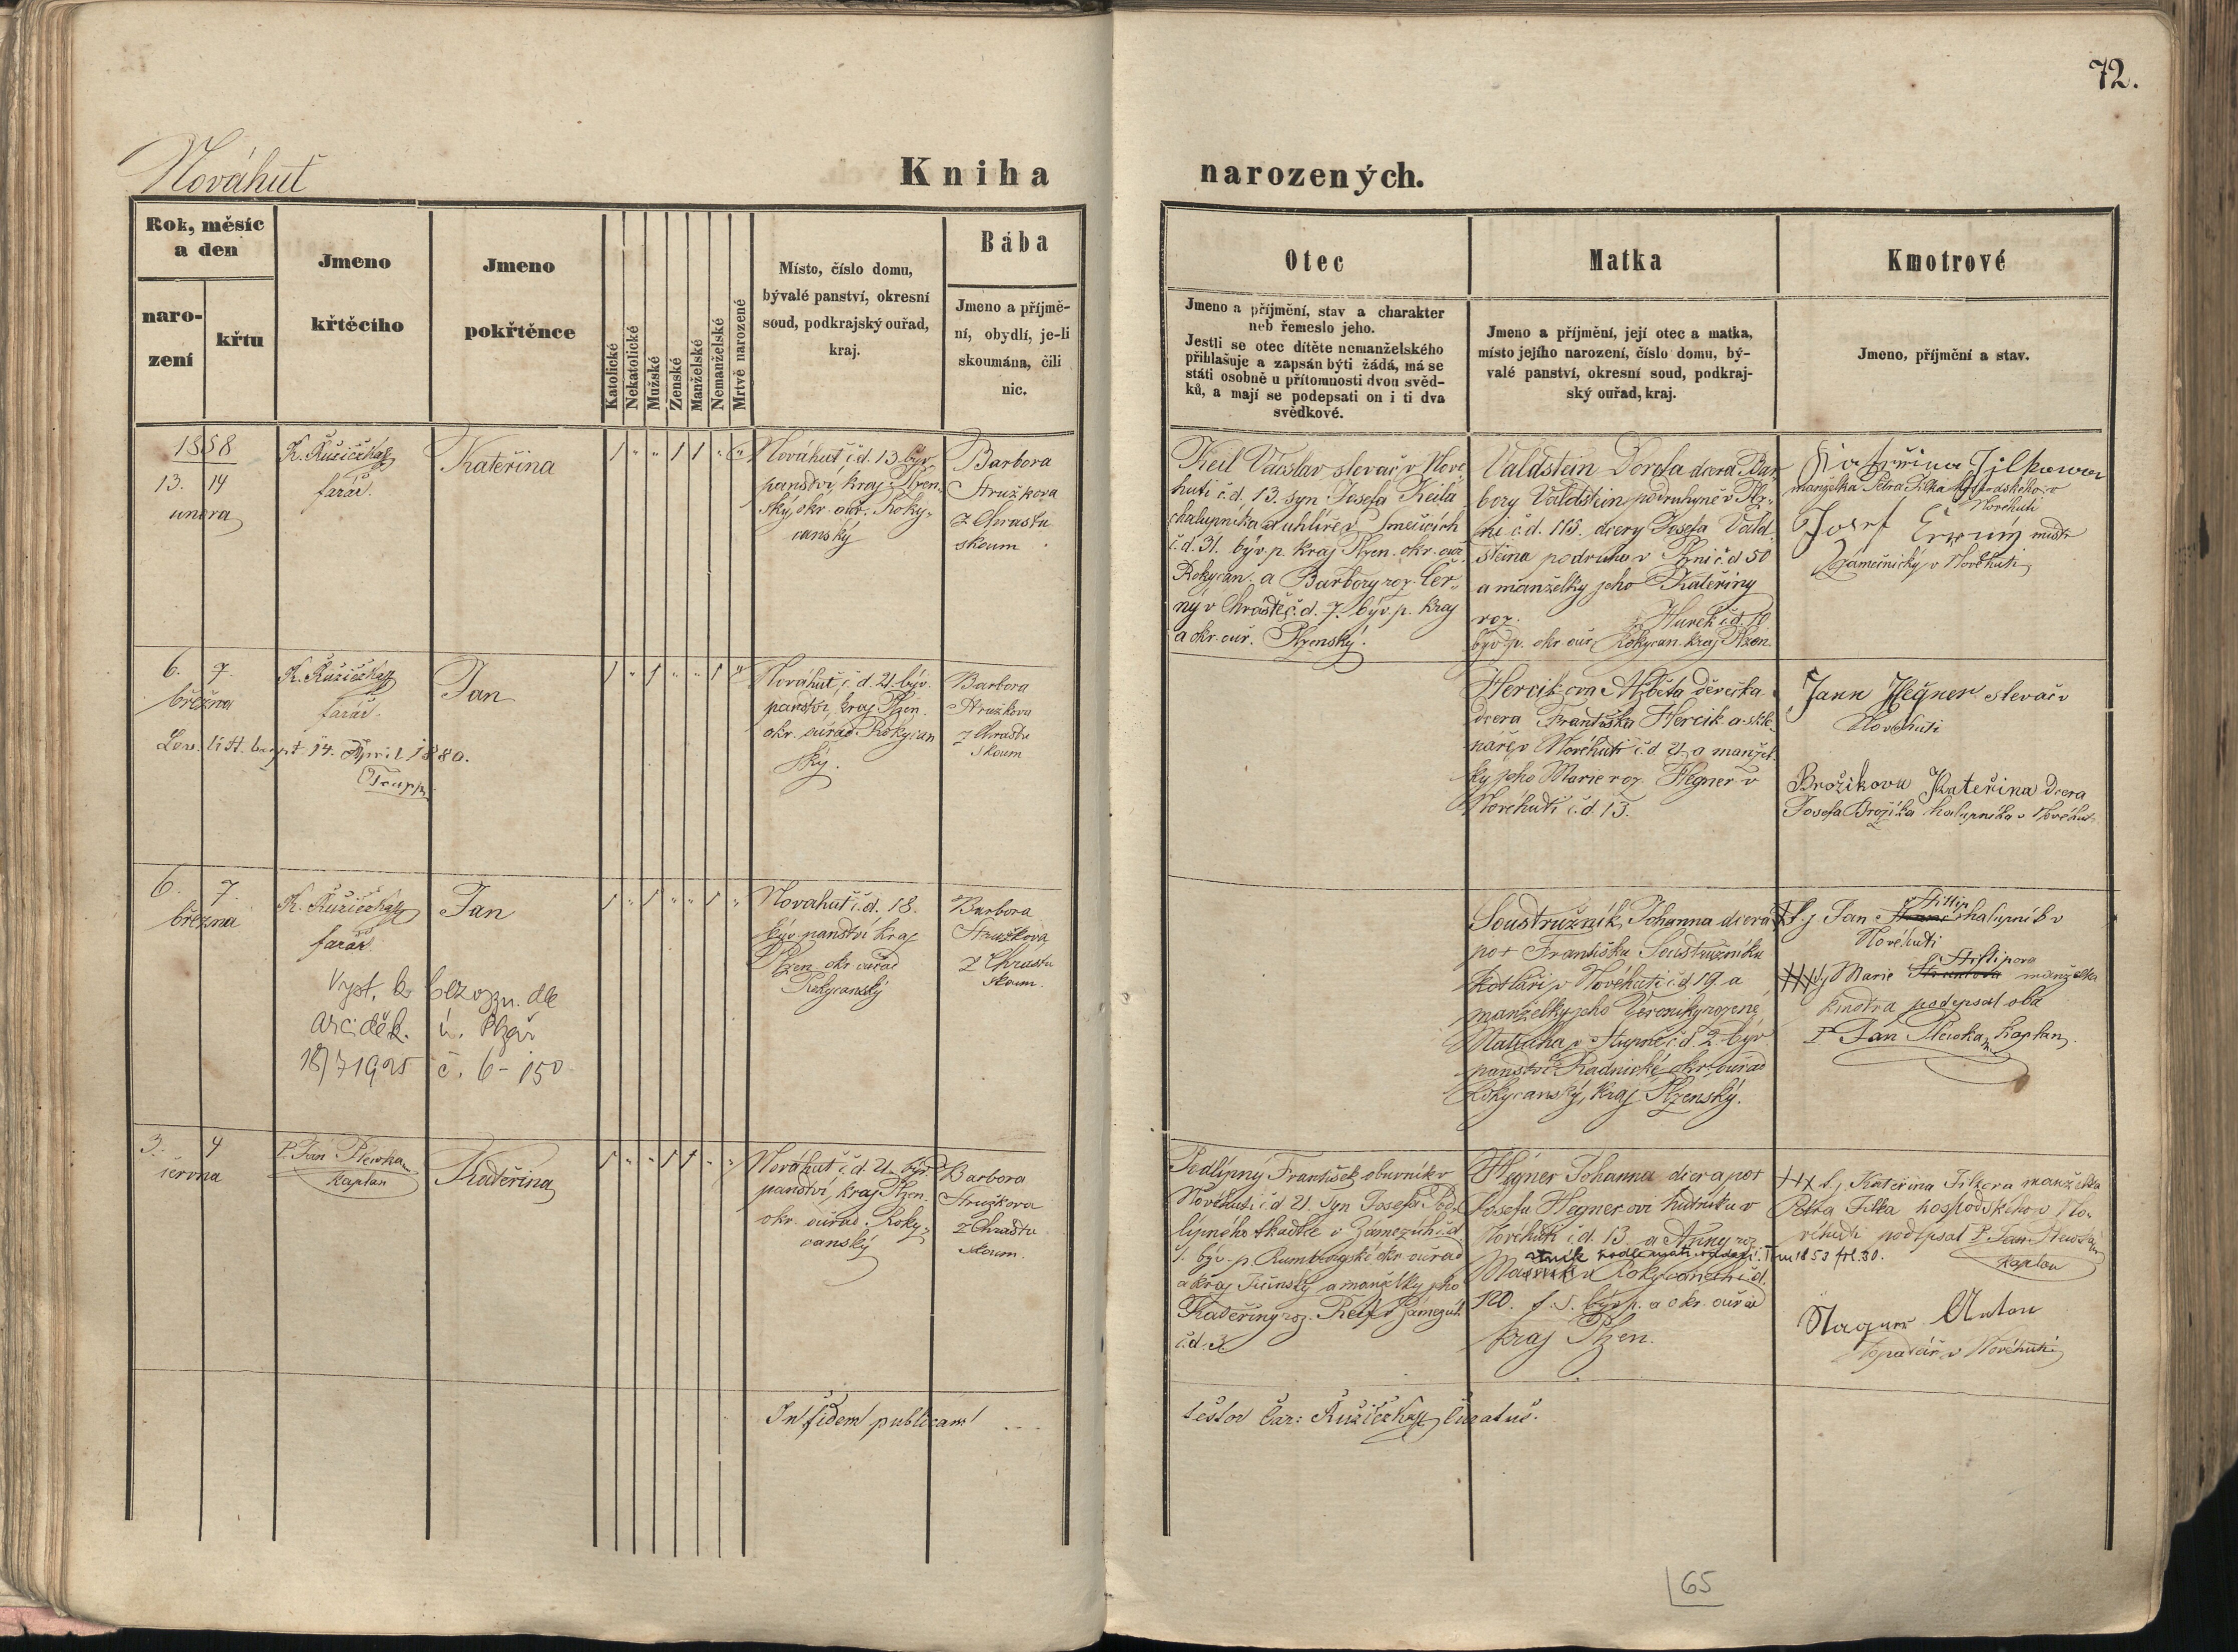 72.
Nováhuť
Kniha narozených.
Rok, měsíc a den
naro-
zení
křtu
Jmeno
křtěcího
Jmeno
pokřtěnce
Katolické
Nekatolické
Mužské
Ženské
Manželské
Nemanželské
Mrtvě narozené
Místo, číslo domu,
bývalé panství, okresní
soud, podkrajský ouřad,
kraj.
Bába
Jmeno a příjmě-
ní, obydlí, je-li
skoumána, čili
nic.
Otec
Jmeno a příjmění, stav a charakter
neb řemeslo jeho.
Jestli se otec dítěte nemanželského
přihlašuje a zapsán býti žádá, má se
státi osobně u přítomnosti dvou svěd-
ků, a mají se podepsati on i ti dva
svědkové.
Matka
Jmeno a příjmění, její otec a matka,
místo jejího narození, číslo domu, bý-
valé panství, okresní soud, podkraj-
ský ouřad, kraj.
Kmotrové
Jmeno, příjmění a stav.
1858
13. 14
unora
K. Růžička
farář.
Kateřina
Nováhuť č.d. 13 býv.
panství, kraj Plzen-
ský, okr. ouř. Roky-
canský
Barbora
Stružkova
z Chrastu
skoum.
Keil Václav slevač v Nové
huti č.d. 13. syn Josefa Keila
chalupníka a uhlíře v Smečicích
č.d. 31. býv. p. kraj Plzen. okr. ouř.
Rokycan. a Barbory roz. Čer-
ný v Chrástě č.d. 7. býv. p. kraj
a okr. ouř. Plzenský.
Valdstein Dorota dcera Bar-
bory Valdstein podruhyně v Plz-
ni č.d. 115. dcery Josefa Vald-
steina podruha v Plzni č.d 50
a manželky jeho Kateřiny
roz. Hurek č.d. 10
býv. p. okr. ouř. Rokycan. kraj Plzen.
Kateřina Jilkowa
manželka Petra Jilka hospodského v
Novéhuti
Josef Černý mistr
zámečnický v Novéhuti
6. 7.
března
K. Růžička
farář.
Jan
Nováhuť č.d. 21. býv.
panství, kraj Plzen.
okr. ouřad Rokycan
ský.
Barbora
Stružkova
z Chrastu
skoum
Hercikova Alžběta děvečka
dcera Františka Hercik a
v Novéhuti č.d 21 a manžel-
ky jeho Marie roz. Hegner v
Novéhuti č.d. 13.
Jann Hegner slevač v
Novéhuti
Brožikova Kateřina dcera
Josefa Brožika chalupníka v Novéhuti
14. April 1880.
6. 7.
března
K. Růžička
farář
Jan
Novahuť č.d. 18.
býv. panství kraj
Plzen. okr. ouřad
Rokycanský
Barbora
Stružkova
z Chrastu
skoum.
Soustružník Johanna dcera
po † Františku Soustružníku
kotláři v Novéhuti č.d 19. a
manželky jeho Veroniky rozené
v Stupně č.d. 2 býv.
panství Radnické okr. ouřad
Rokycanský, kraj Plzenský.
Jan chalupník v
Novéhuti
Marie manželka
kmotra podepsal oba
P. Jan Plewka, kaplan.
Vyst. k. bezozn. dle
arciděk. ú. Plzeň
18/7 1925 č. 6-150
3. 4
června
P. Jan Plewka
kaplan
Kateřina
Nováhuť č.d. 21. býv.
panství, kraj Plzen.
okr. ouřad. Roky-
canský
Barbora
Stružkova
z Chrastu
skoum.
Podlipný František obuvník v
Novéhuti č.d 21. syn Josefa Pod-
lipného tkadlce v Zámezí č.d.
1. býv. p. Rumburgské okr. ouřad
a kraj Jičínský a manželky jeho
Kateřiny roz.
č.d. 3.
Hegner Johanna dcera po †
Josefu Hegner ovi hutníku v
Novéhuti č.d. 13. a Anny roz.
v Rokycanech č.d.
120. f. S. býv. p. a okr. ouřad
kraj Plzen.
+++ t. j. Kateřina Jilkova manželka
Petra Jilka hospodského v No-
véhuti podepsal P. Jan Plewka
kaplan
Wagner Anton
v Novéhuti
In fidem publicam
testor Car: Růžička, Curatus.
65